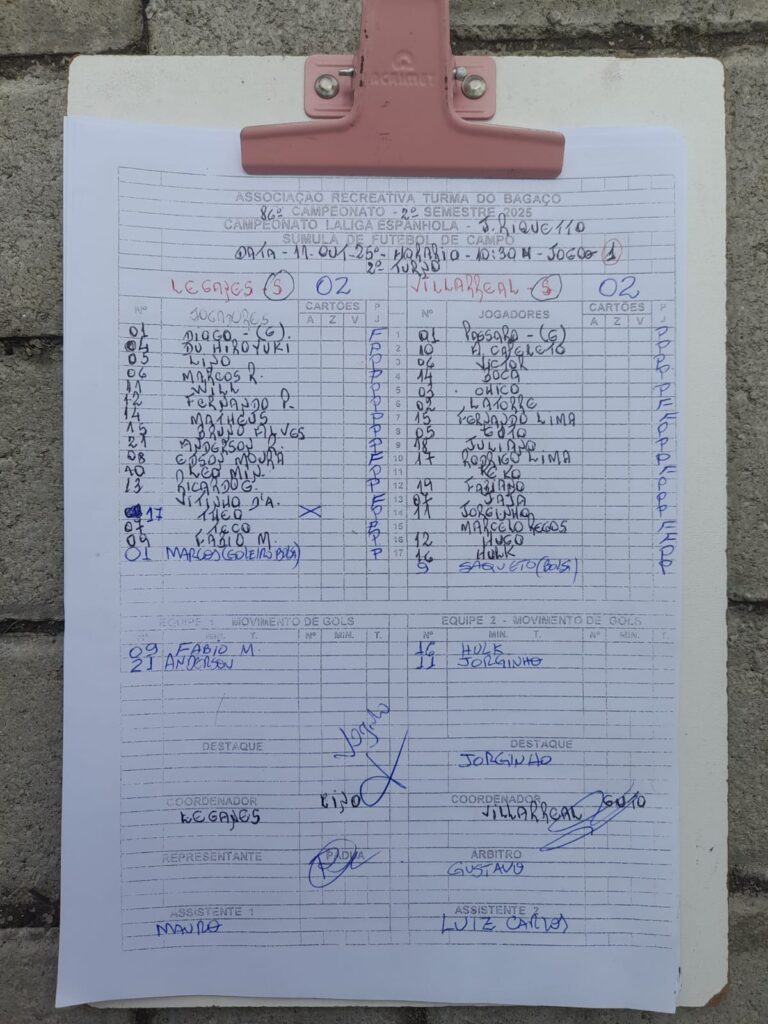 ACRIMET
ASSOCIAÇÃO RECREATIVA TURMA DO BAGAÇO
86º CAMPEONATO - 2º SEMESTRE 2025
CAMPEONATO LALIGA ESPANHOLA - J. RIQUETTO
SUMULA DE FUTEBOL DE CAMPO
DATA - 11-OUT-25 - HORARIO - 10:30 H - JOGO 1
2º TURNO
LEGANES - S 02 VILLARREAL - S 02
Nº JOGADORES CARTÕES P Nº JOGADORES CARTÕES P
A Z V J A Z V J
01 DIOGO - (G). F 1 01 POSSARO - (G) P
04 DU HIROYUKI P 2 10 P
05 LINO P 3 06 VICTOR P
06 MARCOS R. P 4 14 BOCA P
11 WILL P 5 03 CHICO P
12 FERNANDO P. P 6 02 LATORRE F
14 MATHEUS P 7 15 FERNANDO LIMA
15 BRUNO ALVES P 8 05 GUTO
21 ANDERSON R. P 9 18 JULIANO P
08 EDSON MOURA F 10 17 RODRIGO LIMA P
LEO MIN. P 11 KEKO
13 RICARDO G. P 12 19 FABIANO P
VITINHO D'A. F 13 07 JAJA P
17 THEO X P 14 11 JORGINHO P
07 TECO 15 MARCELO REGOS
09 FABIO M. P 16 12 HUGO
01 MARCOS (GOLEIRO BOLSA) P 17 16 HULK P
5 SAQUETO (BOLSA) P
EQUIPE 1 MOVIMENTO DE GOLS EQUIPE 2 - MOVIMENTO DE GOLS
Nº MIN. T. Nº MIN. T. Nº MIN. T. Nº MIN. T.
09 FABIO M. 16 HULK
21 ANDERSON 11 JORGINHO
DESTAQUE DESTAQUE
JORGINHO
COORDENADOR LINO COORDENADOR GUTO
LEGANES VILLARREAL
REPRESENTANTE PADUA ARBITRO
GUSTAVO
ASSISTENTE 1 ASSISTENTE 2
MAURO LUIZ CARLOS